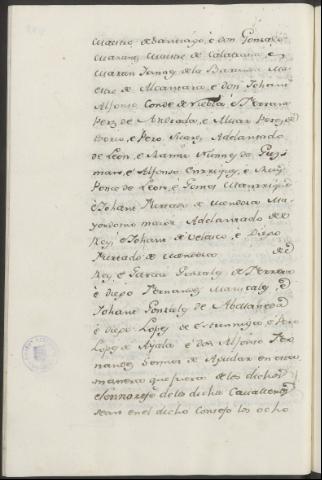 Maestre de Santiago, e don Gonzalo
Maestre de Calatrava, e
Martin Yannez de la Barvuda Ma
estre de Alcantara, e don Johan
Alfonso Conde de Niebla, e
Perez de Andrada, e Alvar Perez de
Osorio, e Pero Suarez Adelantado
de Leon, e Ramir Nunnez de Guz
man, e Alfonso Enrriquez, e Ruy
Ponce de Leon, e Gomez Manrrique
e Johan Furtado de Mendoza Ma
yordomo maior Adelantado del
Rey, e Johan de Velasco, e Diego
Furtado de Mendoza del
Rey, e Garcia Gonzalez de Ferrera
e Diego Fernandez Mariscales, e
Johan Gonzalez de Abellaneda
e Diego Lopez de Estunniga, e Pero
Lopez de Ayala e don Alfonso Fer
nandez Sennor de Aguilar en esta
manera que fuera de los dichos
e de los dichos Cavalleros
sean en el dicho Consejo los ocho